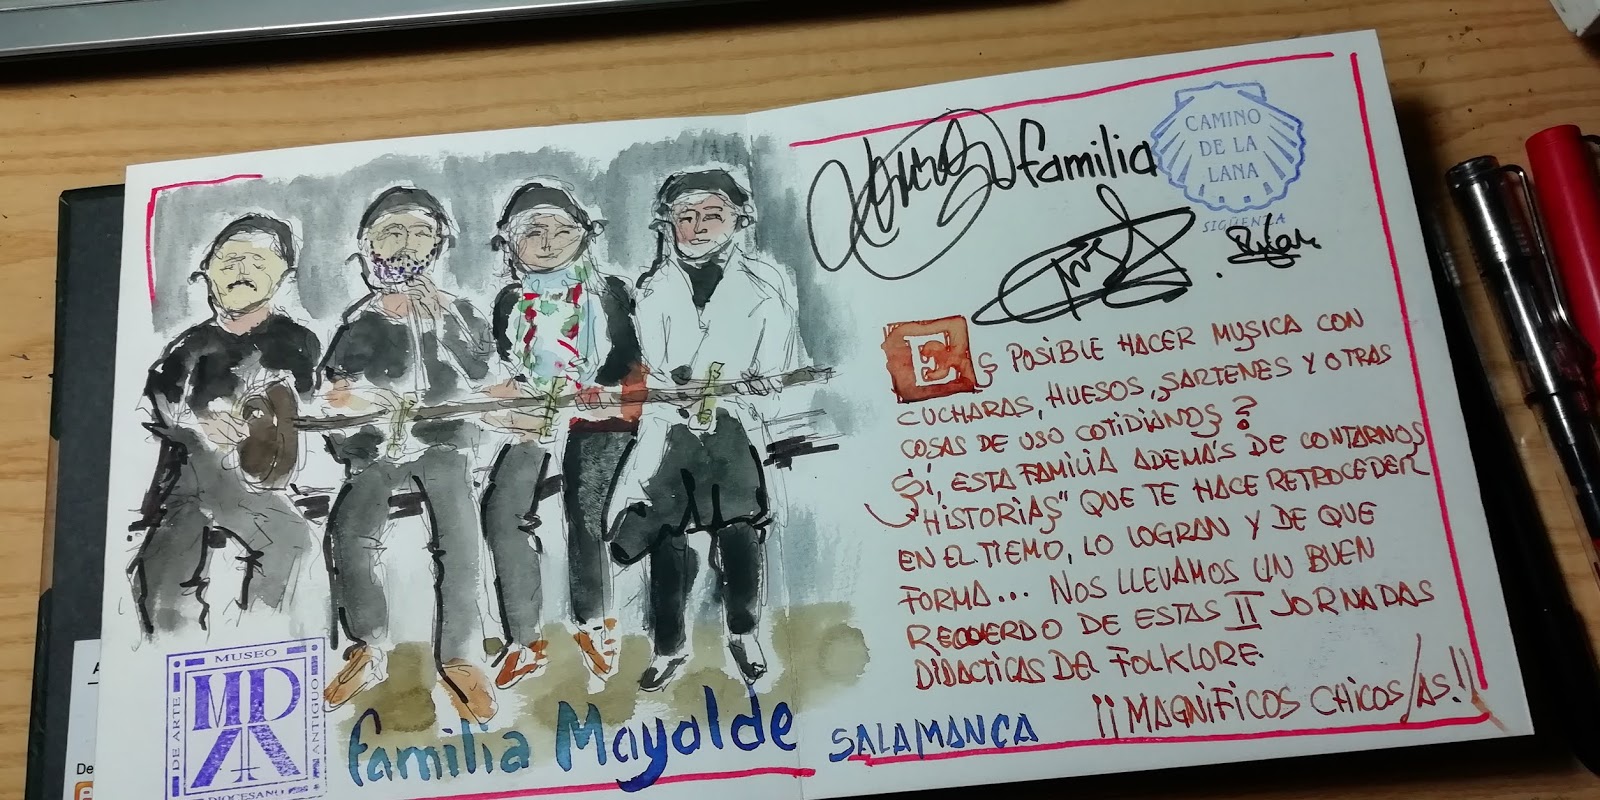 familia
CAMINO
DE LA
LANA
SIGÜENZA
ES POSIBLE HACER MUSICA CON
CUCHARAS, HUESOS, SARTENES Y OTRAS
COSAS DE USO COTIDIANOS?
SÍ, ESTA FAMILIA ADEMÁS DE CONTARNOS
"HISTORIAS" QUE TE HACE RETROCEDER
EN EL TIEMO, LO LOGRAN Y DE QUE
FORMA... NOS LLEVAMOS UN BUEN
RECUERDO DE ESTAS II JORNADAS
DIDACTICAS DEL FOLKLORE
¡¡MAGNIFICOS CHICOS/AS!!
familia Mayalde SALAMANCA
MUSEO
DE ARTE
ANTIGUO
DIOCESANO
De